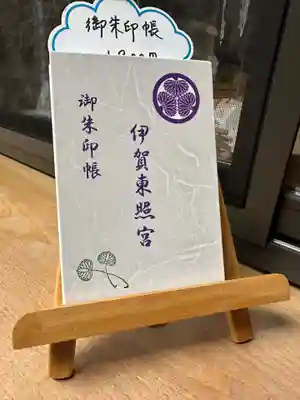 御朱印帳
伊賀東照宮
御朱印帳